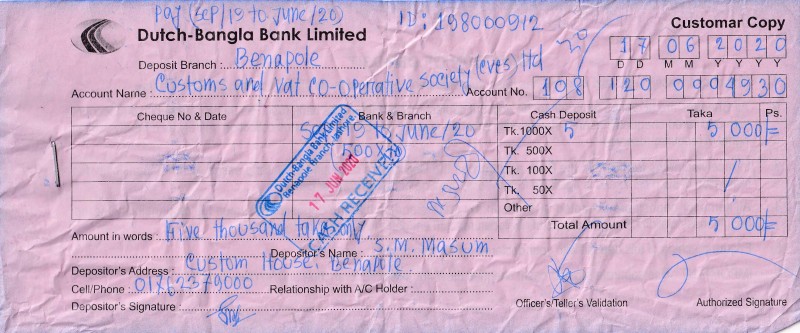 Pay (Sep/19 to June/20) ID: 198000912
Dutch-Bangla Bank Limited
Customar Copy
17 06 2020
D D M M Y Y Y Y
Deposit Branch : Benapole
Account Name : Customs and Vat CO-operative Society (eves) ltd Account No. 108 120 0004930
Cheque No & Date Bank & Branch Cash Deposit Taka Ps.
Sep/19 to June/20 Tk.1000X 5 5 000/=
(500X Tk. 500X
Tk. 100X
Tk. 50X
Other
Total Amount 5 000/=
Dutch-Bangla Bank Limited
Benapole Branch, Jashore.
17 JUN 2020
CASH RECEIVED
Amount in words : Five thousand taka only
Depositor's Name : S.M. Masum
Depositor's Address : Custom House, Benapole
Cell/Phone : 01862379000 Relationship with A/C Holder :
Depositor's Signature :
Officer's/Teller's Validation Authorized Signature